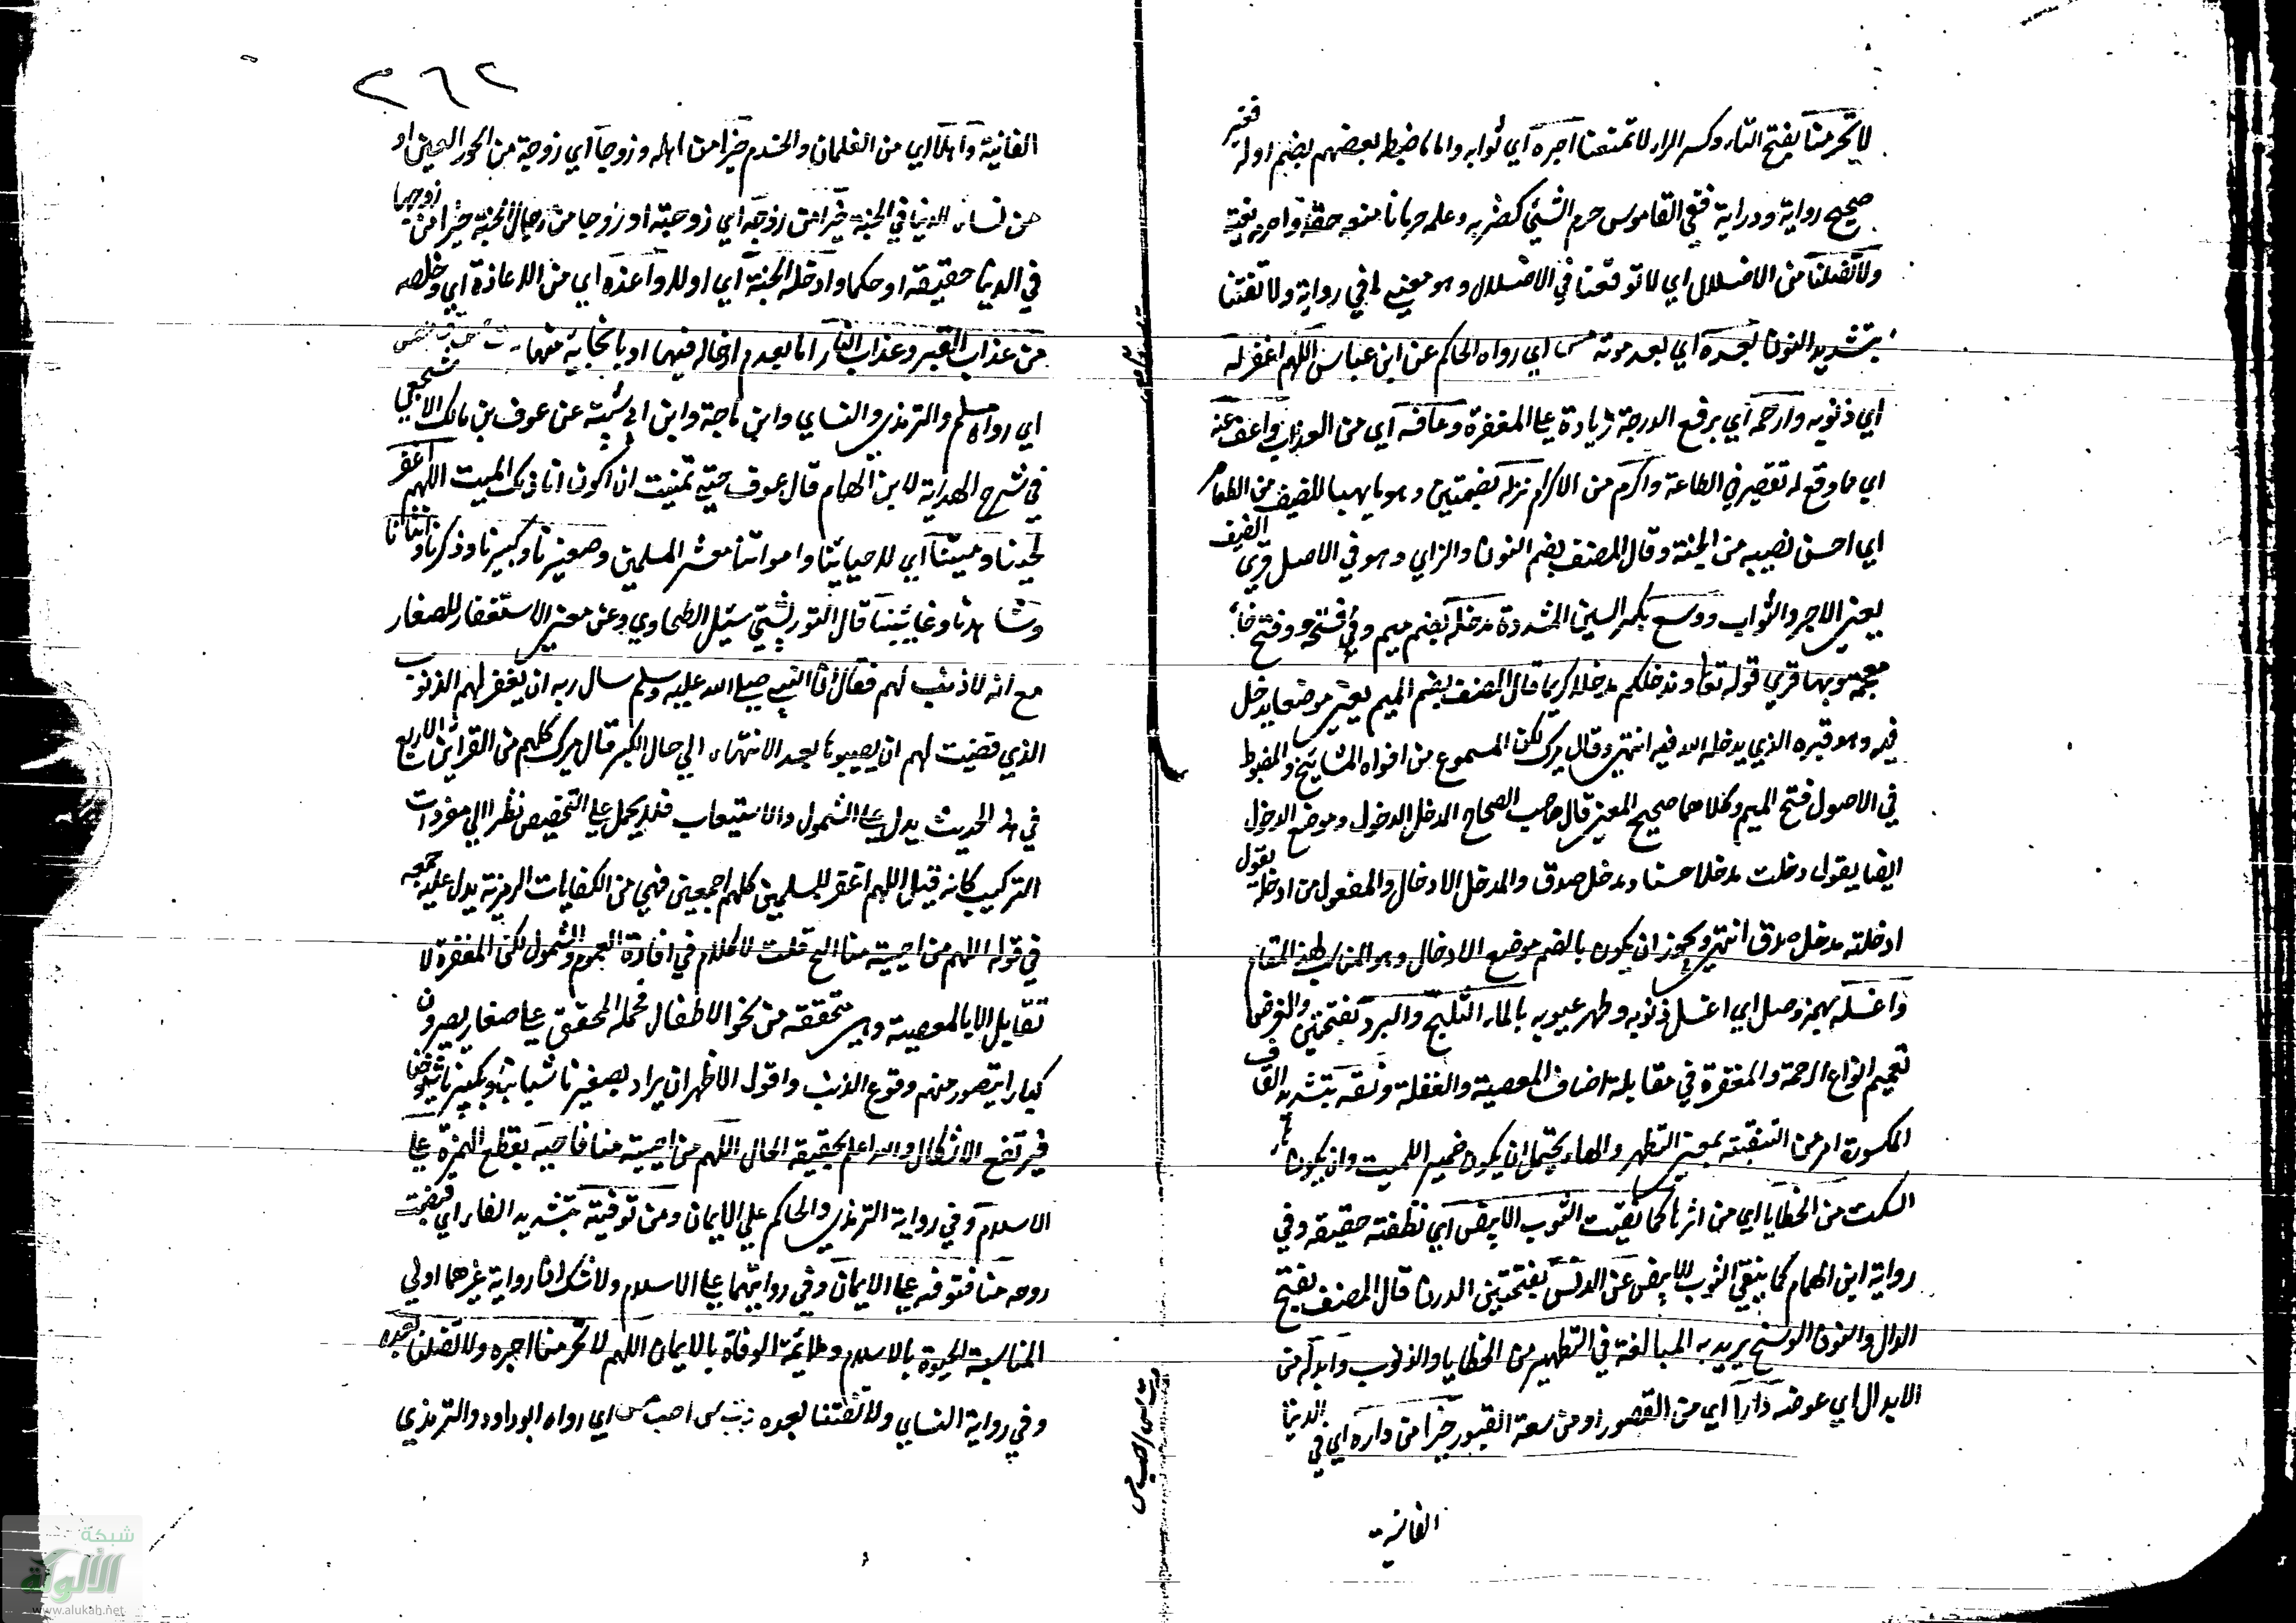 لا تحرمنا بفتح التاء وكسر الراء لا تمنعنا اجره اي ثوابه واما ما ضبطه بعضهم بضم اوله فغير
صحيح رواية ودراية ففي القاموس حرم الشيء كضربه وعلمه حرمانا منعه حقه واحرمه لغية
ولا تضلنا من الاضلال اي لا توقعنا في الاضلال وهو معنى ما في رواية ولا تفتنا
بتشديد النون بعده اي بعد موته مس اي رواه الحاكم عن ابن عباس اللهم اغفر له
اي ذنوبه وارحمه اي برفع الدرجة زيادة على المغفرة وعافه اي من العذاب واعف عنه
اي مما وقع له تقصير في الطاعة واكرم من الاكرام نزله بضمتين وهو ما يهيأ للضيف من الطعام
اي احسن نصيبه من الجنة وقال المصنف بضم النون والزاي وهو في الاصل قرى الضيف
يعني الاجر والثواب ووسع بكسر السين المشددة مدخله بضم ميم وفي نسخة وفتح خاء
معجمة وبهما قرئ قوله تعالى وندخلكم مدخلا كريما قال المصنف بضم الميم يعني موضعا يدخل
فيه وهو قبره الذي يدخله الله فيه انتهى وقال ميرك لكن المسموع من افواه المشايخ والمضبوط
في الاصول فتح الميم وكلاهما صحيح المعنى قال صاحب الصحاح المدخل الدخول وموضع الدخول
ايضا يقول دخلت مدخلا حسنا ومدخل صدق والمدخل الادخال والمفعول من ادخله يقول
ادخلته مدخل صدق انتهى ويجوز ان يكون بالضم موضع الادخال وهو المناسب لهذا المقام
واغسله بهمز وصل اي اغسل ذنوبه وطهر عيوبه بالماء الثلج والبرد بفتحتين والغرض
تعميم انواع الرحمة والمغفرة في مقابلة اصناف المعصية والغفلة ونقه بتشديد القاف
المكسورة امر من التنقية بمعنى التطهير والهاء يحتمل ان يكون ضمير الميت وان يكون هاء
السكت من الخطايا اي من اثرها كما نقيت الثوب الابيض اي نظفته حقيقة وفي
رواية ابن الهمام كما ينقى الثوب الابيض من الدنس بفتحتين الدرن قال المصنف بفتح
الدال والنون الوسخ يريد به المبالغة في التطهير من الخطايا والذنوب وابدله من
الابدال اي عوضه دارا اي من القصور او من سعة القبور خيرا من داره اي في الدنيا
الفانية
٣٦٢
الفانية واهلا اي من الغلمان والخدم خيرا من اهله وزوجا اي زوجة من الحور العين او
من نساء الدنيا في الجنة خيرا من زوجه اي زوجته او زوجا من رجال الجنة خيرا من زوجها
في الدنيا حقيقة او حكما وادخله الجنة اي اولا واعذه اي من الاعاذة اي وخلصه
من عذاب القبر وعذاب النار اما بعدم ادخاله فيهما او بانجائه منهما
اي رواه مسلم والترمذي والنساي وابن ماجة وابن ابي شيبة عن عوف بن مالك الاشجعي
في شرح الهداية لابن الهمام قال عوف حتى تمنيت ان اكون انا ذلك الميت اللهم اغفر
لحينا وميتنا اي لاحيائنا وامواتنا معشر المسلمين وصغيرنا وكبيرنا وذكرنا وانثانا
وشاهدنا وغائبنا قال التوربشتي سئل الطحاوي عن معنى الاستغفار للصغار
مع انه لا ذنب لهم فقال ان النبي صلى الله عليه وسلم سال ربه ان يغفر لهم الذنوب
الذي قضيت لهم ان يصيبوها بعد الانتهاء الي حال الكبر قال ميرك كلهم من القرائن الاربع
في هذا الحديث يدل على الشمول والاستيعاب فلا يحمل على التخصيص نظرا الي مفردات
التركيب كانه قيل اللهم اغفر للمسلمين كلهم اجمعين فهي من الكنايات الرمزية يدل عليه جمعه
في قوله اللهم من احييته منا الخ قلت لا كلام في افادة العموم والشمول لكن المغفرة لا
تقابل الا بالمعصية وهي متحققة من نحو الاطفال فحمله المحقق على صغار يصيرون
كبارا يتصور منهم وقوع الذنب واقول الاظهر ان يراد بصغيرنا شبابنا وبكبيرنا شيوخنا
فيرتفع الاشكال والله اعلم بحقيقة الحال اللهم من احييته منا فاحيه بقطع الهمزة على
الاسلام وفي رواية الترمذي والحاكم علي الايمان ومن توفيته بتشديد الفاء اي قبضت
روحه منا فتوفه على الايمان وفي روايتهما على الاسلام ولا شك ان رواية غيرهما اولي
المناسبة الحيوة بالاسلام وملائمة الوفاة بالايمان اللهم لا تحرمنا اجره ولا تضلنا بعده
وفي رواية النساي ولا تفتنا بعده د ت س احب مس اي رواه ابو داود والترمذي
شبكة
الألوكة
www.alukah.net